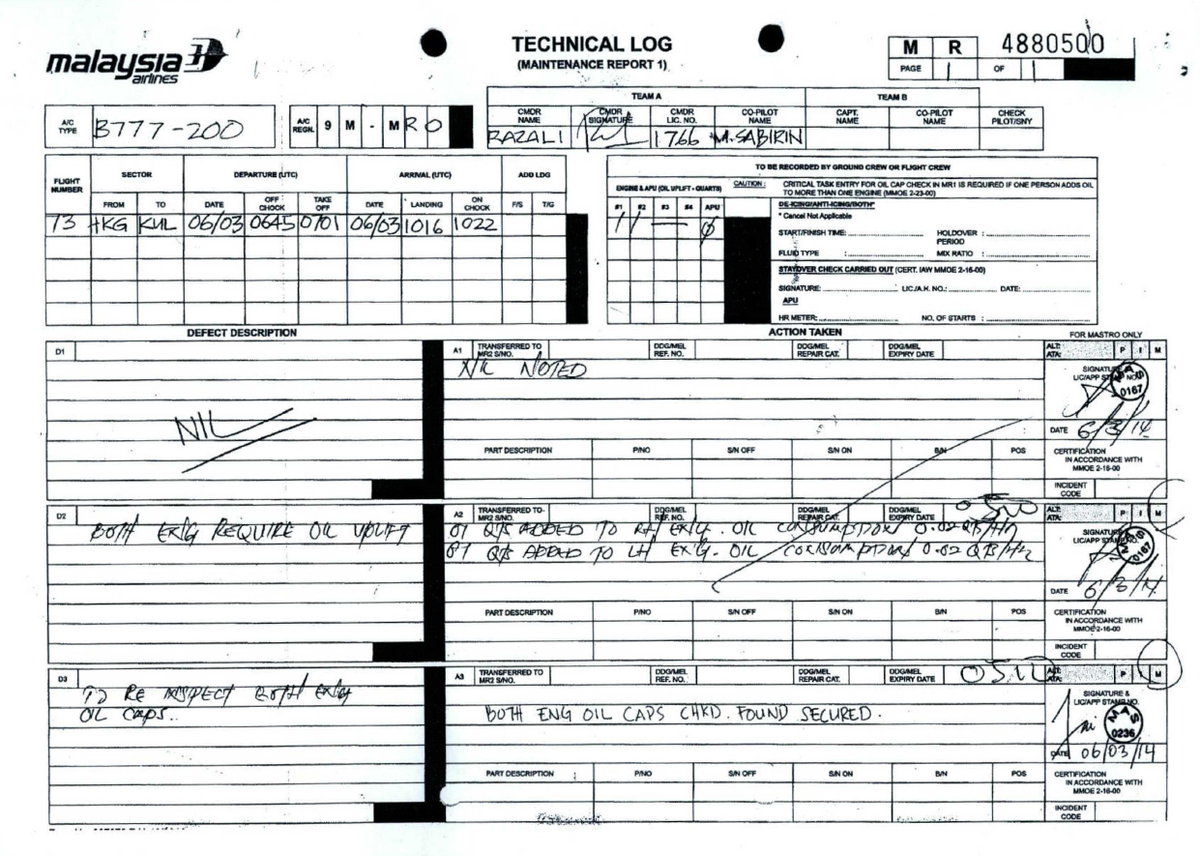 malaysia
airlines
TECHNICAL LOG
(MAINTENANCE REPORT 1)
M R 4880500
PAGE 1 OF 1
A/C TYPE B777-200
A/C REGN. 9 M - M R O
TEAM A TEAM B
CMDR NAME CMDR SIGNATURE CMDR LIC. NO. CO-PILOT NAME CAPT. NAME CO-PILOT NAME CHECK PILOT/SNY
RAZALI 1766 M. SABIRIN
FLIGHT NUMBER SECTOR DEPARTURE (UTC) ARRIVAL (UTC) ADD LDG
FROM TO DATE OFF CHOCK TAKE OFF DATE LANDING ON CHOCK F/S T/G
73 HKG KUL 06/03 0645 0701 06/03 1016 1022
TO BE RECORDED BY GROUND CREW OR FLIGHT CREW
ENGINE & APU (OIL UPLIFT - QUARTS)
#1 #2 #3 #4 APU
1 1 — 0
CAUTION : CRITICAL TASK ENTRY FOR OIL CAP CHECK IN MR1 IS REQUIRED IF ONE PERSON ADDS OIL
TO MORE THAN ONE ENGINE (MMOE 2-23-00)
DE-ICING/ANTI-ICING/BOTH*
* Cancel Not Applicable
START/FINISH TIME: HOLDOVER PERIOD :
FLUID TYPE : MIX RATIO :
STAYOVER CHECK CARRIED OUT (CERT. IAW MMOE 2-16-00)
SIGNATURE: LIC./A.H. NO.: DATE:
APU
HR METER: NO. OF STARTS :
DEFECT DESCRIPTION ACTION TAKEN FOR MASTRO ONLY
D1 A1 TRANSFERRED TO MR2 S/NO. DDG/MEL REF. NO. DDG/MEL REPAIR CAT. DDG/MEL EXPIRY DATE ALT: ATA: P I M
NIL
NIL NOTED
SIGNATURE & LIC/APP STAMP NO.
MAS 0167
DATE 6/3/14
PART DESCRIPTION P/NO S/N OFF S/N ON B/N POS
CERTIFICATION IN ACCORDANCE WITH MMOE 2-16-00
INCIDENT CODE
D2 A2 TRANSFERRED TO MR2 S/NO. DDG/MEL REF. NO. DDG/MEL REPAIR CAT. DDG/MEL EXPIRY DATE ALT: ATA: P I M
BOTH ENG REQUIRE OIL UPLIFT
01 QTS ADDED TO RH ENG. OIL CONSUMPTION 0.02 QTS/HR
01 QTS ADDED TO LH ENG. OIL CONSUMPTION 0.02 QTS/HR
SIGNATURE & LIC/APP STAMP NO.
MAS 0167
DATE 6/3/14
PART DESCRIPTION P/NO S/N OFF S/N ON B/N POS
CERTIFICATION IN ACCORDANCE WITH MMOE 2-16-00
INCIDENT CODE
D3 A3 TRANSFERRED TO MR2 S/NO. DDG/MEL REF. NO. DDG/MEL REPAIR CAT. DDG/MEL EXPIRY DATE ALT: ATA: P I M
TO RE INSPECT BOTH ENG
OIL CAPS.
BOTH ENG OIL CAPS CHKD. FOUND SECURED.
SIGNATURE & LIC/APP STAMP NO.
MAS 0236
DATE 06/03/14
PART DESCRIPTION P/NO S/N OFF S/N ON B/N POS
CERTIFICATION IN ACCORDANCE WITH MMOE 2-16-00
INCIDENT CODE